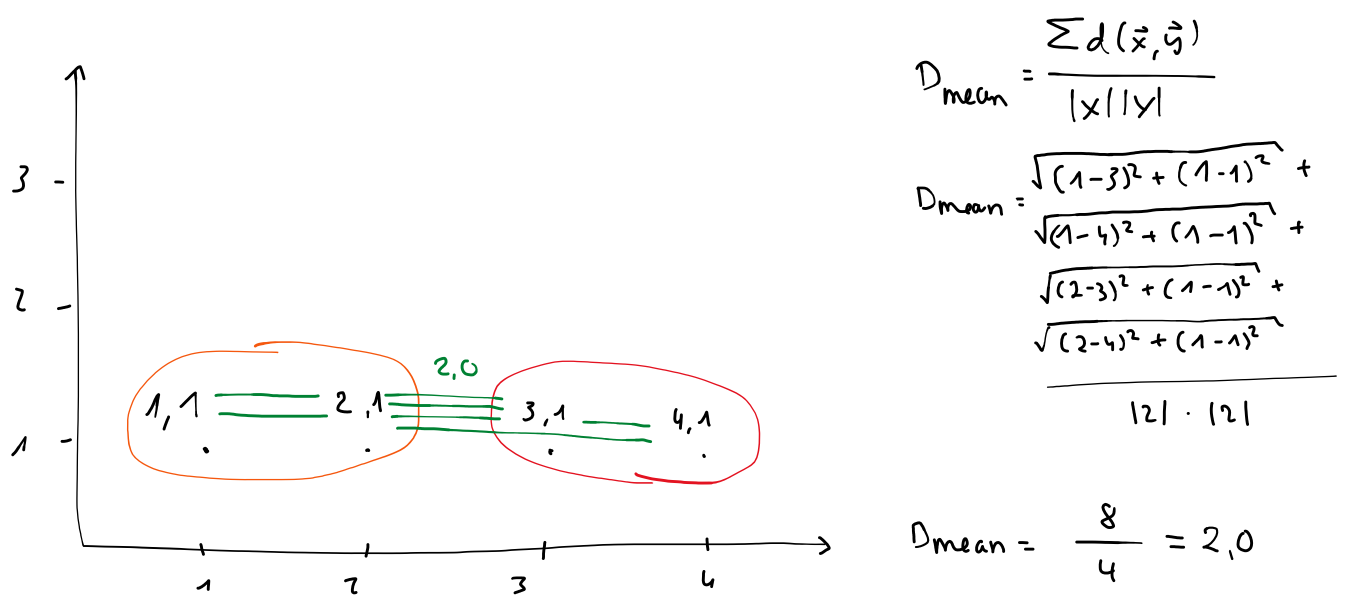 3
2
1
1 2 3 4
1,1 2,1 3,1 4,1
2,0
D_mean = Σd(x⃗,y⃗) / |x||y|
D_mean = √(1-3)² + (1-1)² +
√(1-4)² + (1-1)² +
√(2-3)² + (1-1)² +
√(2-4)² + (1-1)²
|2| · |2|
D_mean = 8/4 = 2,0